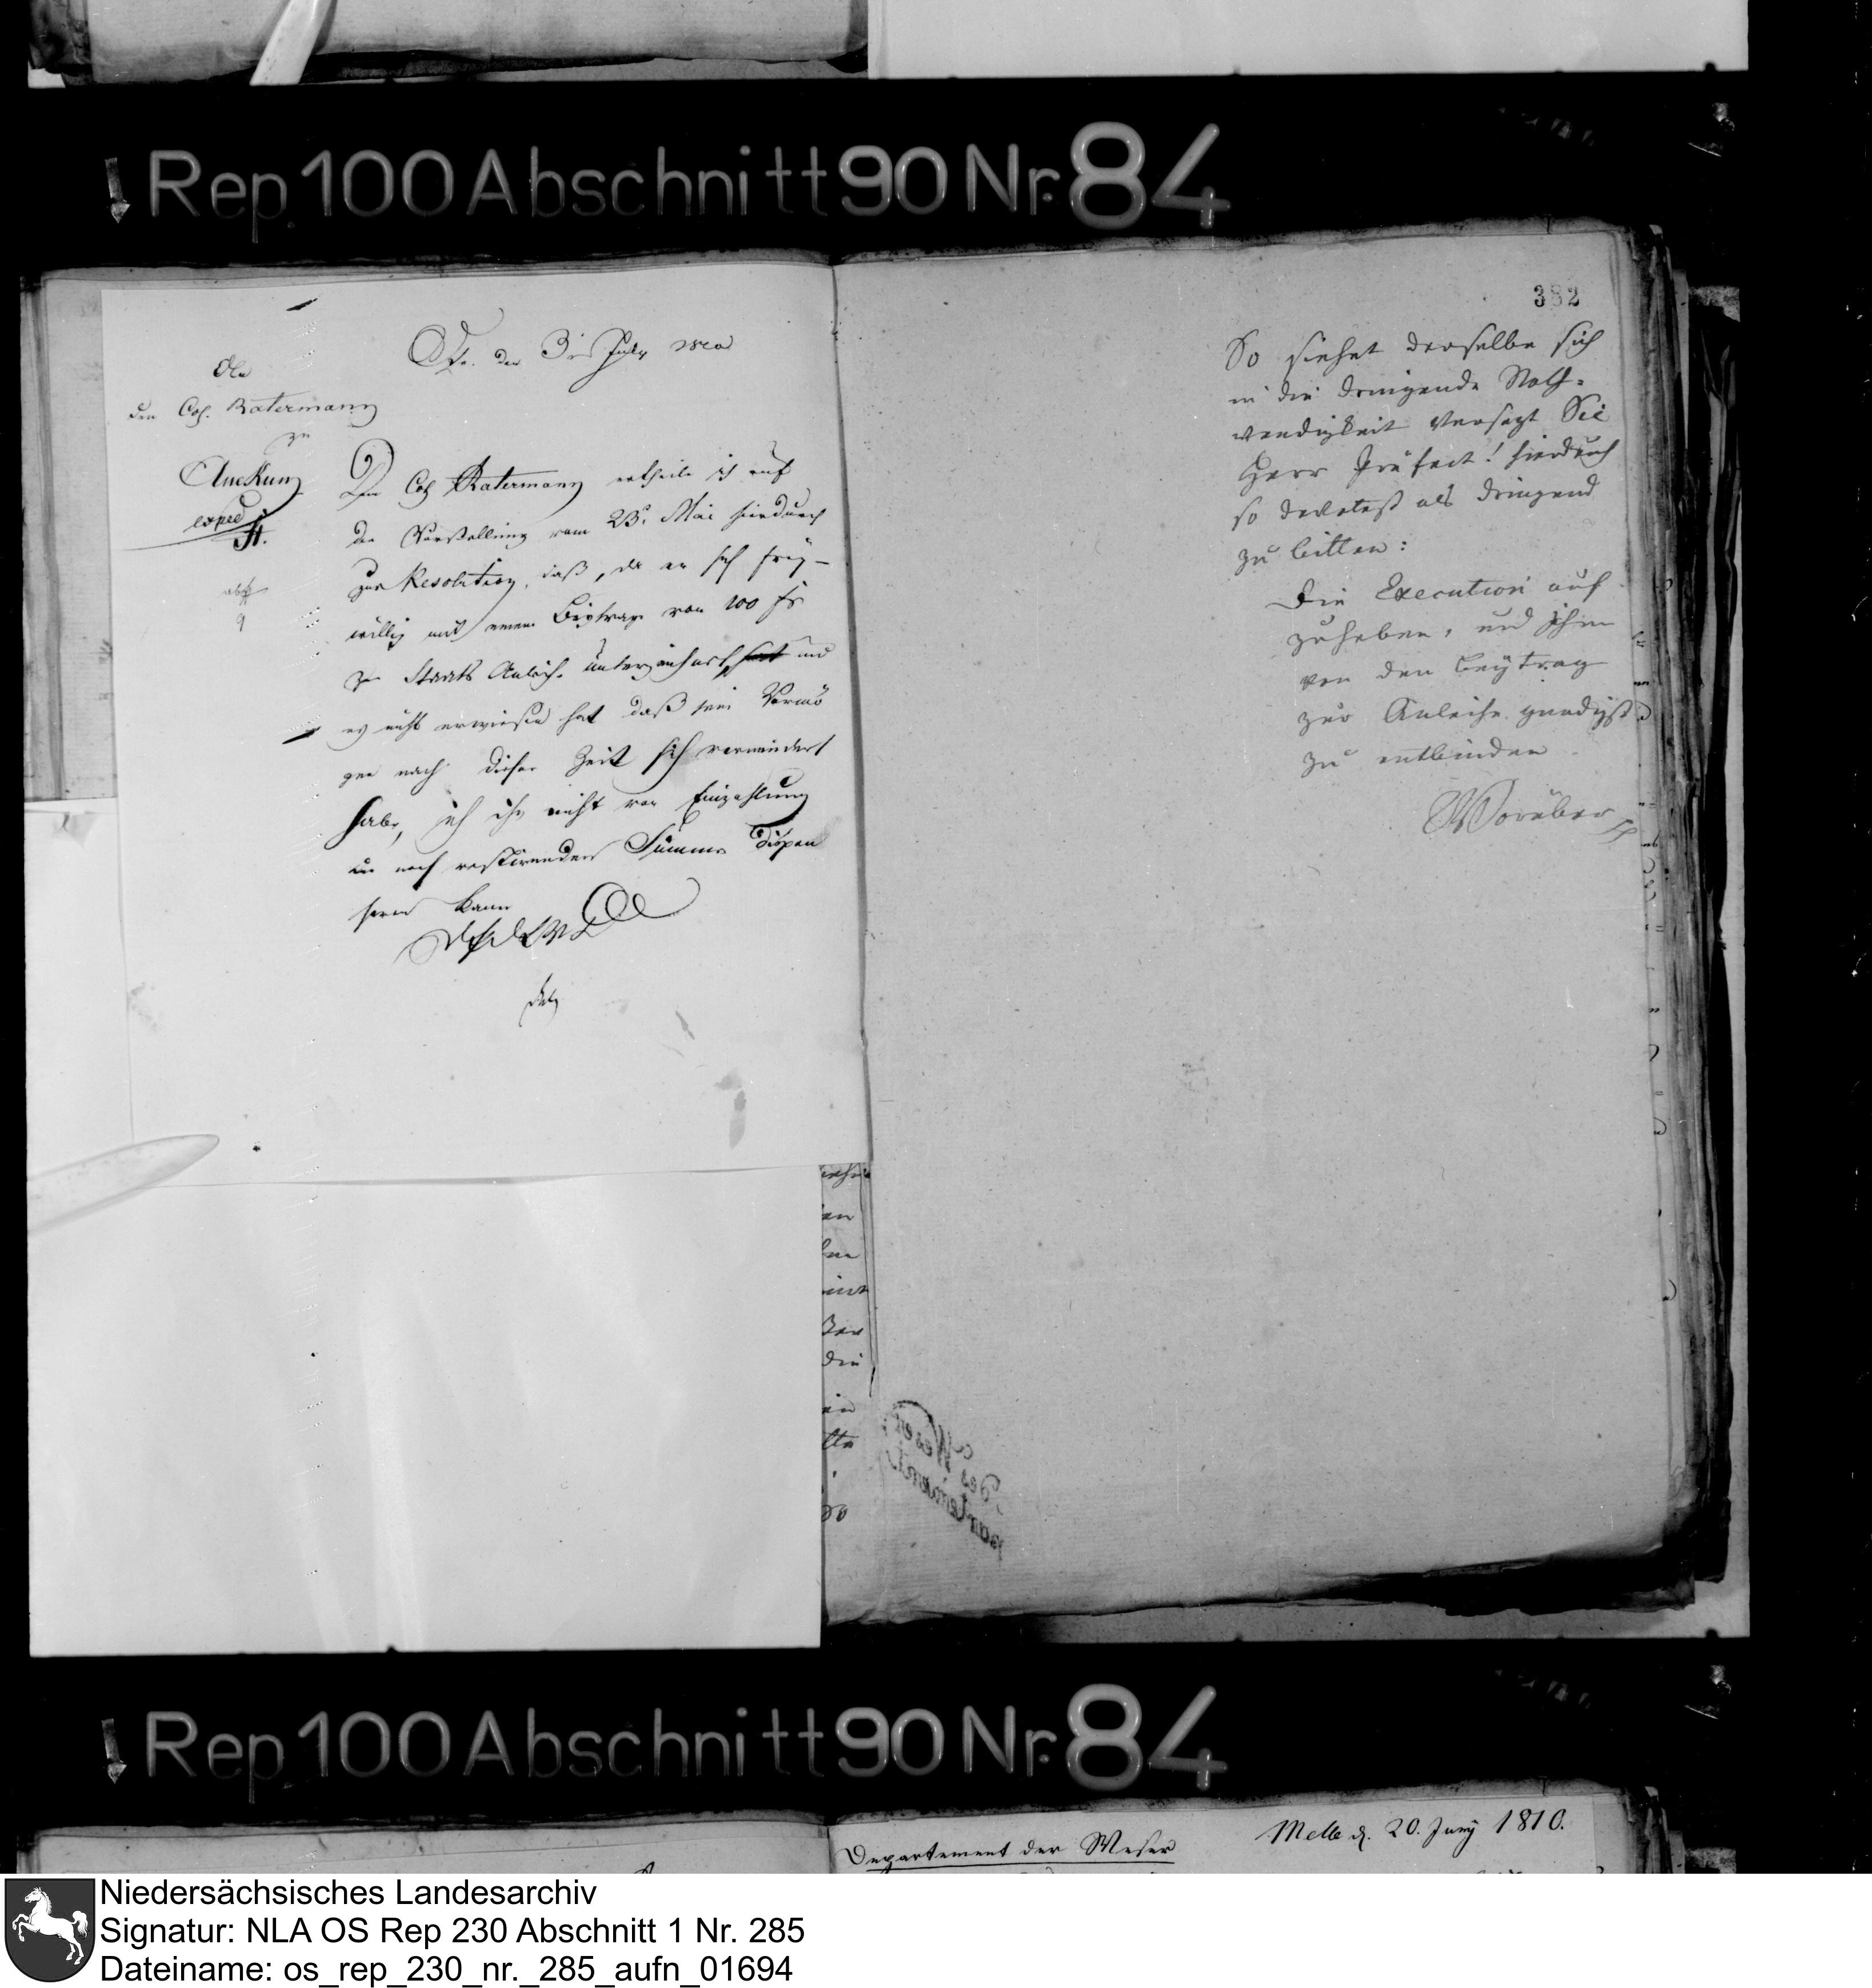 Rep 100 Abschnitt 90 Nr. 84
Os. den 3ts July 1810
An
den Col. Ratermann
zu
Aueskum
exped
Dem Col Ratermann ertheile ich auf
die Vorstellung vom 23t Mai hierdurch
zur Resolution, daß, da er sich frey-
willig mit einem Beytrage von 100 fs
zur Staats Anleihe unterzeichnet und
es nicht erwiesen hat daß sein Vermö
gen nach dieser Zeit sich vermindert
habe, ich ihn nicht von Einzahlung
der noch restirenden Summe dispen
siren kann
382
So siehet derselbe sich
in die dringende Noth-
wendigkeit versezt Sie
Herr Präfect! hierdurch
so devotest als dringend
zu bitten:
Die Execution auf
zuheben, und ihn
von den Beytrag
zur Anleihe gnädigst
zu entbinden
Worüber
des Weser
partements
Rep 100 Abschnitt 90 Nr. 84
Departement der Weser
Melle d. 20. Juny 1810.
Niedersächsisches Landesarchiv
Signatur: NLA OS Rep 230 Abschnitt 1 Nr. 285
Dateiname: os_rep_230_nr._285_aufn_01694